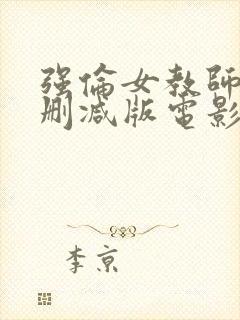 强倫女教師
删减版電影
李京